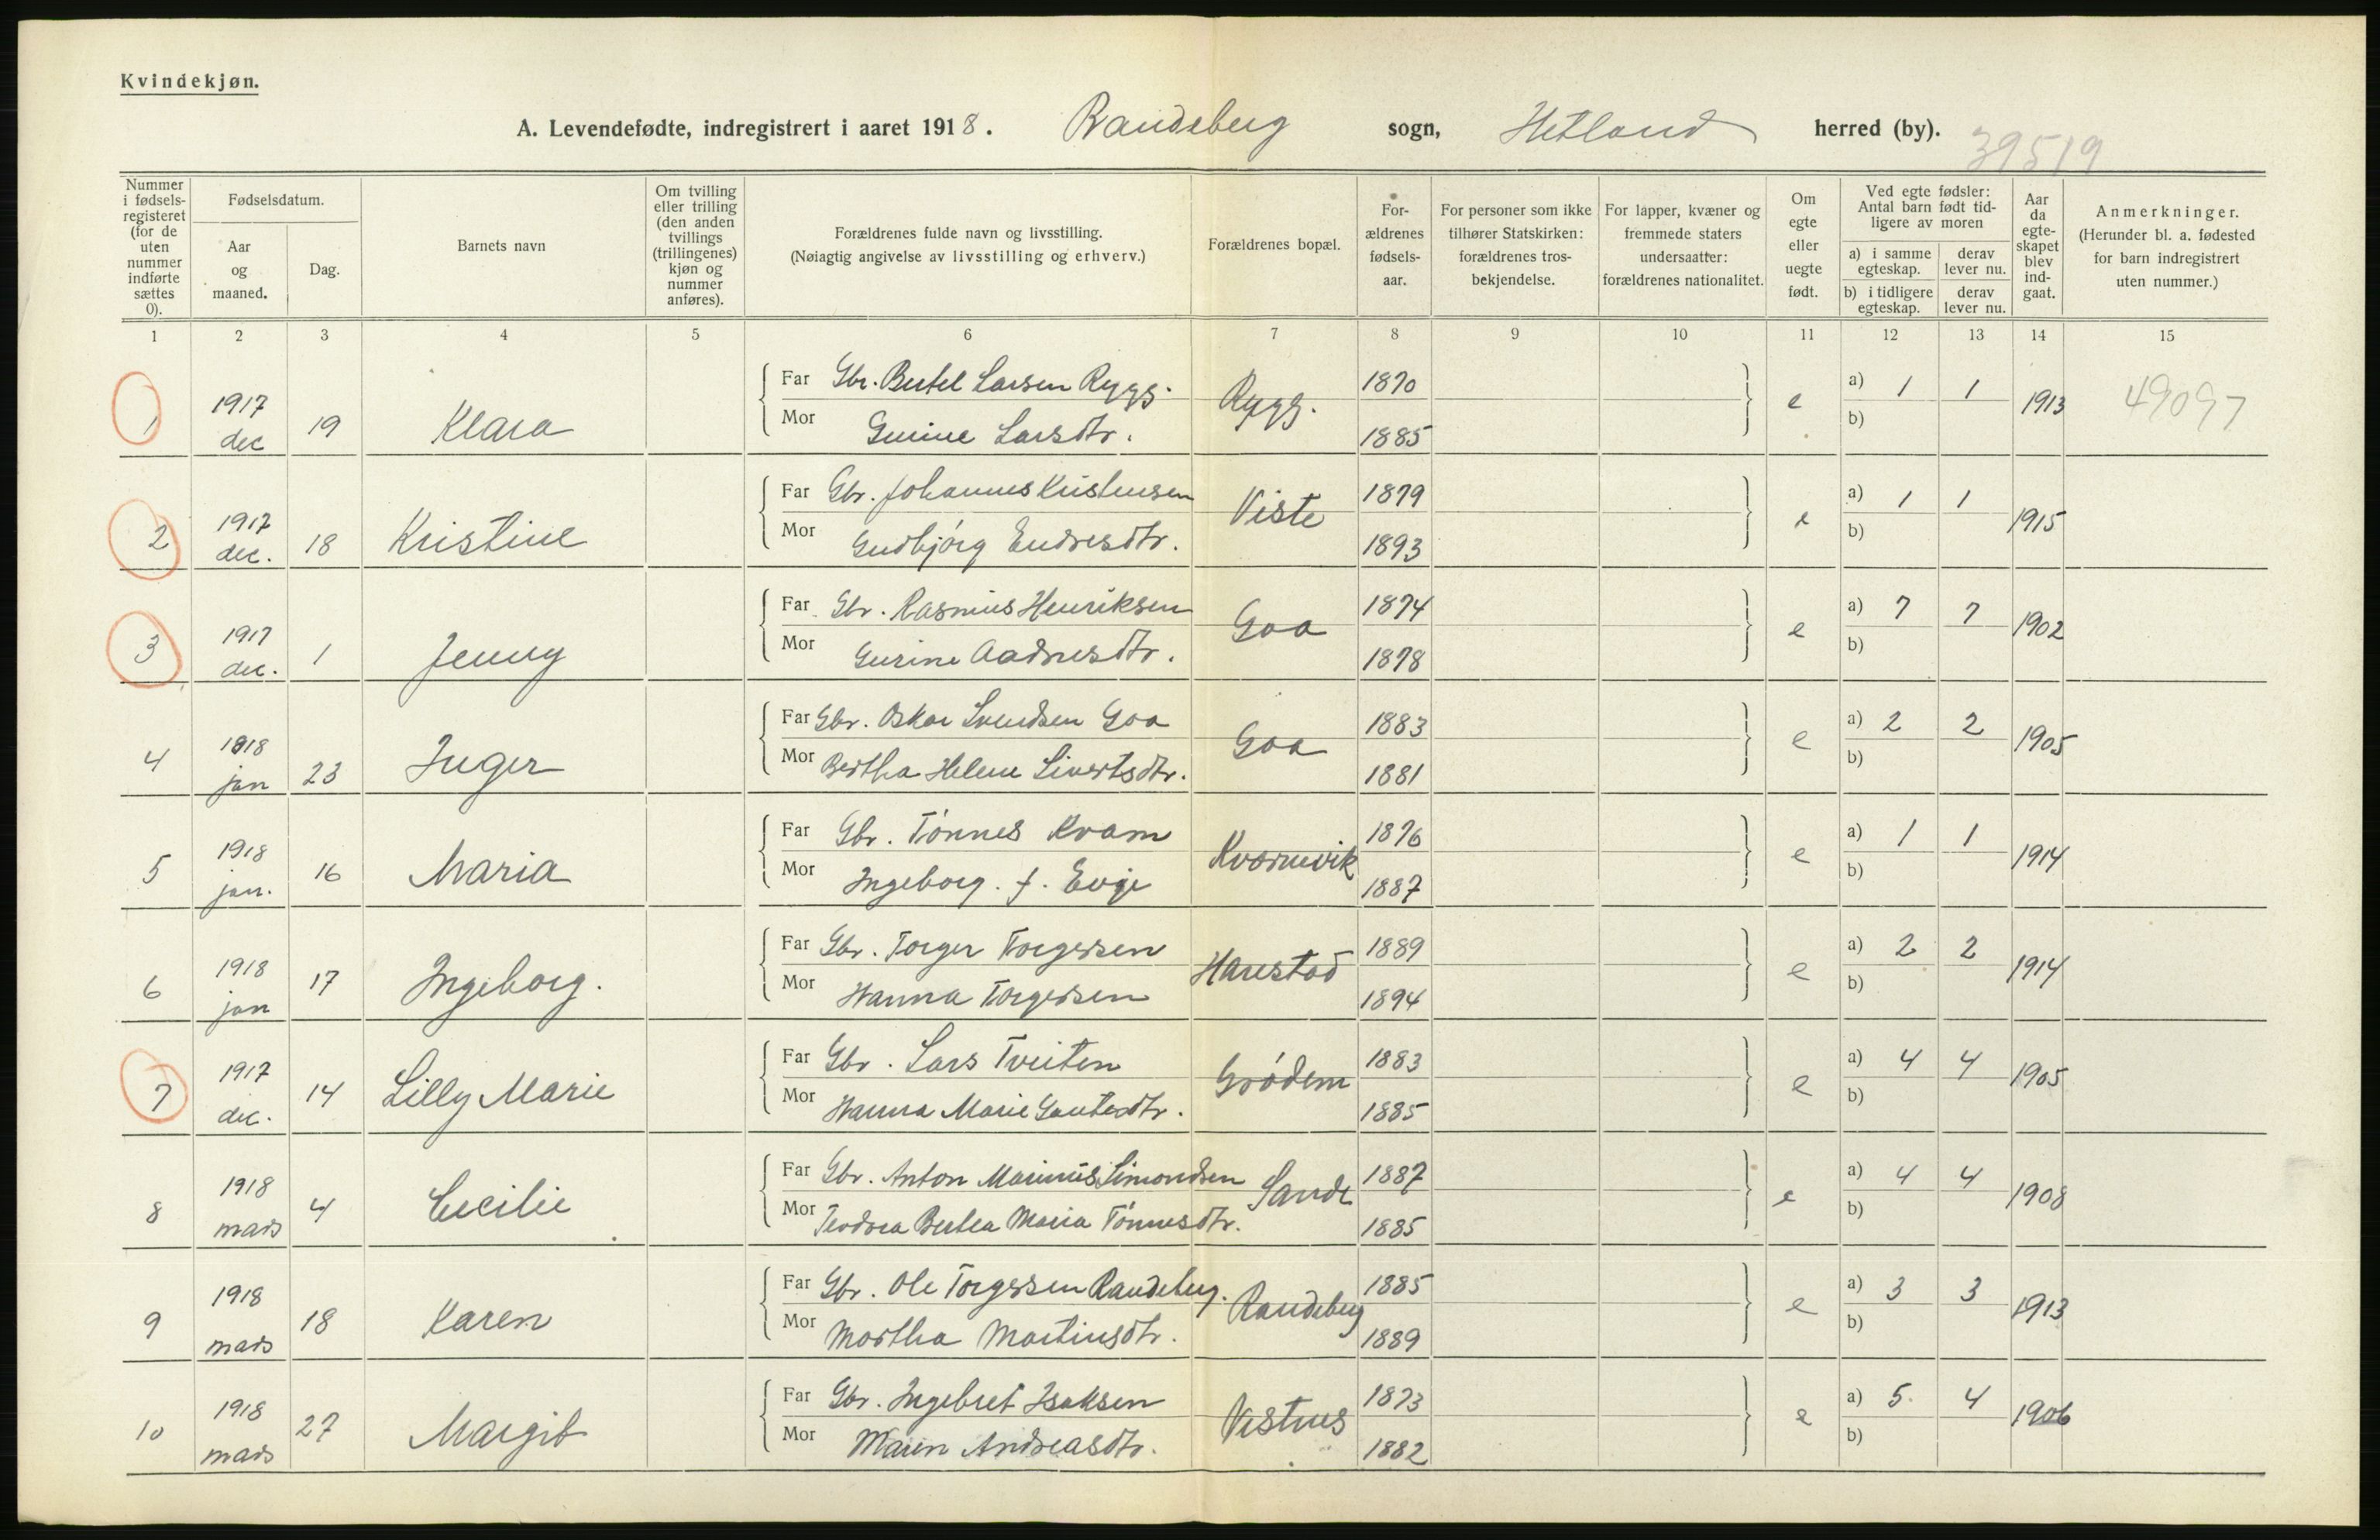 Kvindekjøn.
A. Levendefødte, indregistrert i aaret 1918. Randeberg sogn, Hetland herred (by).
39519
Nummer i fødsels-registeret (for de uten nummer indførte sættes 0).
Fødselsdatum.
Aar og maaned.
Dag.
Barnets navn
Om tvilling eller trilling (den anden tvillings (trillingenes) kjøn og nummer anføres).
Forældrenes fulde navn og livsstilling.
(Nøiagtig angivelse av livsstilling og erhverv.)
Forældrenes bopæl.
For-ældrenes fødsels-aar.
For personer som ikke tilhører Statskirken: forældrenes tros-bekjendelse.
For lapper, kvæner og fremmede staters undersaatter: forældrenes nationalitet.
Om egte eller uegte født.
Ved egte fødsler: Antal barn født tid-ligere av moren
a) i samme egteskap. derav lever nu.
b) i tidligere egteskap. derav lever nu.
Aar da egte-skapet blev ind-gaat.
Anmerkninger.
(Herunder bl. a. fødested for barn indregistrert uten nummer.)
1 2 3 4 5 6 7 8 9 10 11 12 13 14 15
1 1917 dec 19 Klara
Far Gbr. Bertel Larsen Rygg. Rygg. 1870 e a) 1 1 1913 49097
Mor Gurine Larsdtr. 1885 b)
2 1917 dec. 18 Kristine
Far Gbr. Johannes Kristensen Viste 1879 e a) 1 1 1915
Mor Gudbjörg Endresdtr. 1893 b)
3 1917 dec. 1 Jenny
Far Gbr. Rasmus Henriksen Goa 1874 e a) 7 7 1902
Mor Gurine Aadnesdtr. 1878 b)
4 1918 jan 23 Inger
Far Gbr. Oskar Svendsen Goa Goa 1883 e a) 2 2 1905
Mor Bertha Helene Sivertsdtr. 1881 b)
5 1918 jan. 16 Maria
Far Gbr. Tönnes Kvam Kværnevik 1876 e a) 1 1 1914
Mor Ingeborg. f. Evje 1887 b)
6 1918 jan 17 Ingeborg.
Far Gbr. Torger Torgersen Harestad 1889 e a) 2 2 1914
Mor Hanna Torgersen 1894 b)
7 1917 dec. 14 Lilly Marie
Far Gbr. Lars Tveiten Grödem 1883 e a) 4 4 1905
Mor Hanna Marie Gautesdtr. 1885 b)
8 1918 mars 4 Cecilie
Far Gbr. Anton Marinus Simondsen Sande 1887 e a) 4 4 1908
Mor Teodora Bertea Maria Tönnesdtr. 1885 b)
9 1918 mars 18 Karen
Far Gbr. Ole Torgersen Randeberg. Randeberg 1885 e a) 3 3 1913
Mor Martha Martinsdtr. 1889 b)
10 1918 mars 27 Margit
Far Gbr. Ingebret Isaksen Vistnes 1873 e a) 5 4 1906
Mor Maren Andreasdtr. 1882 b)